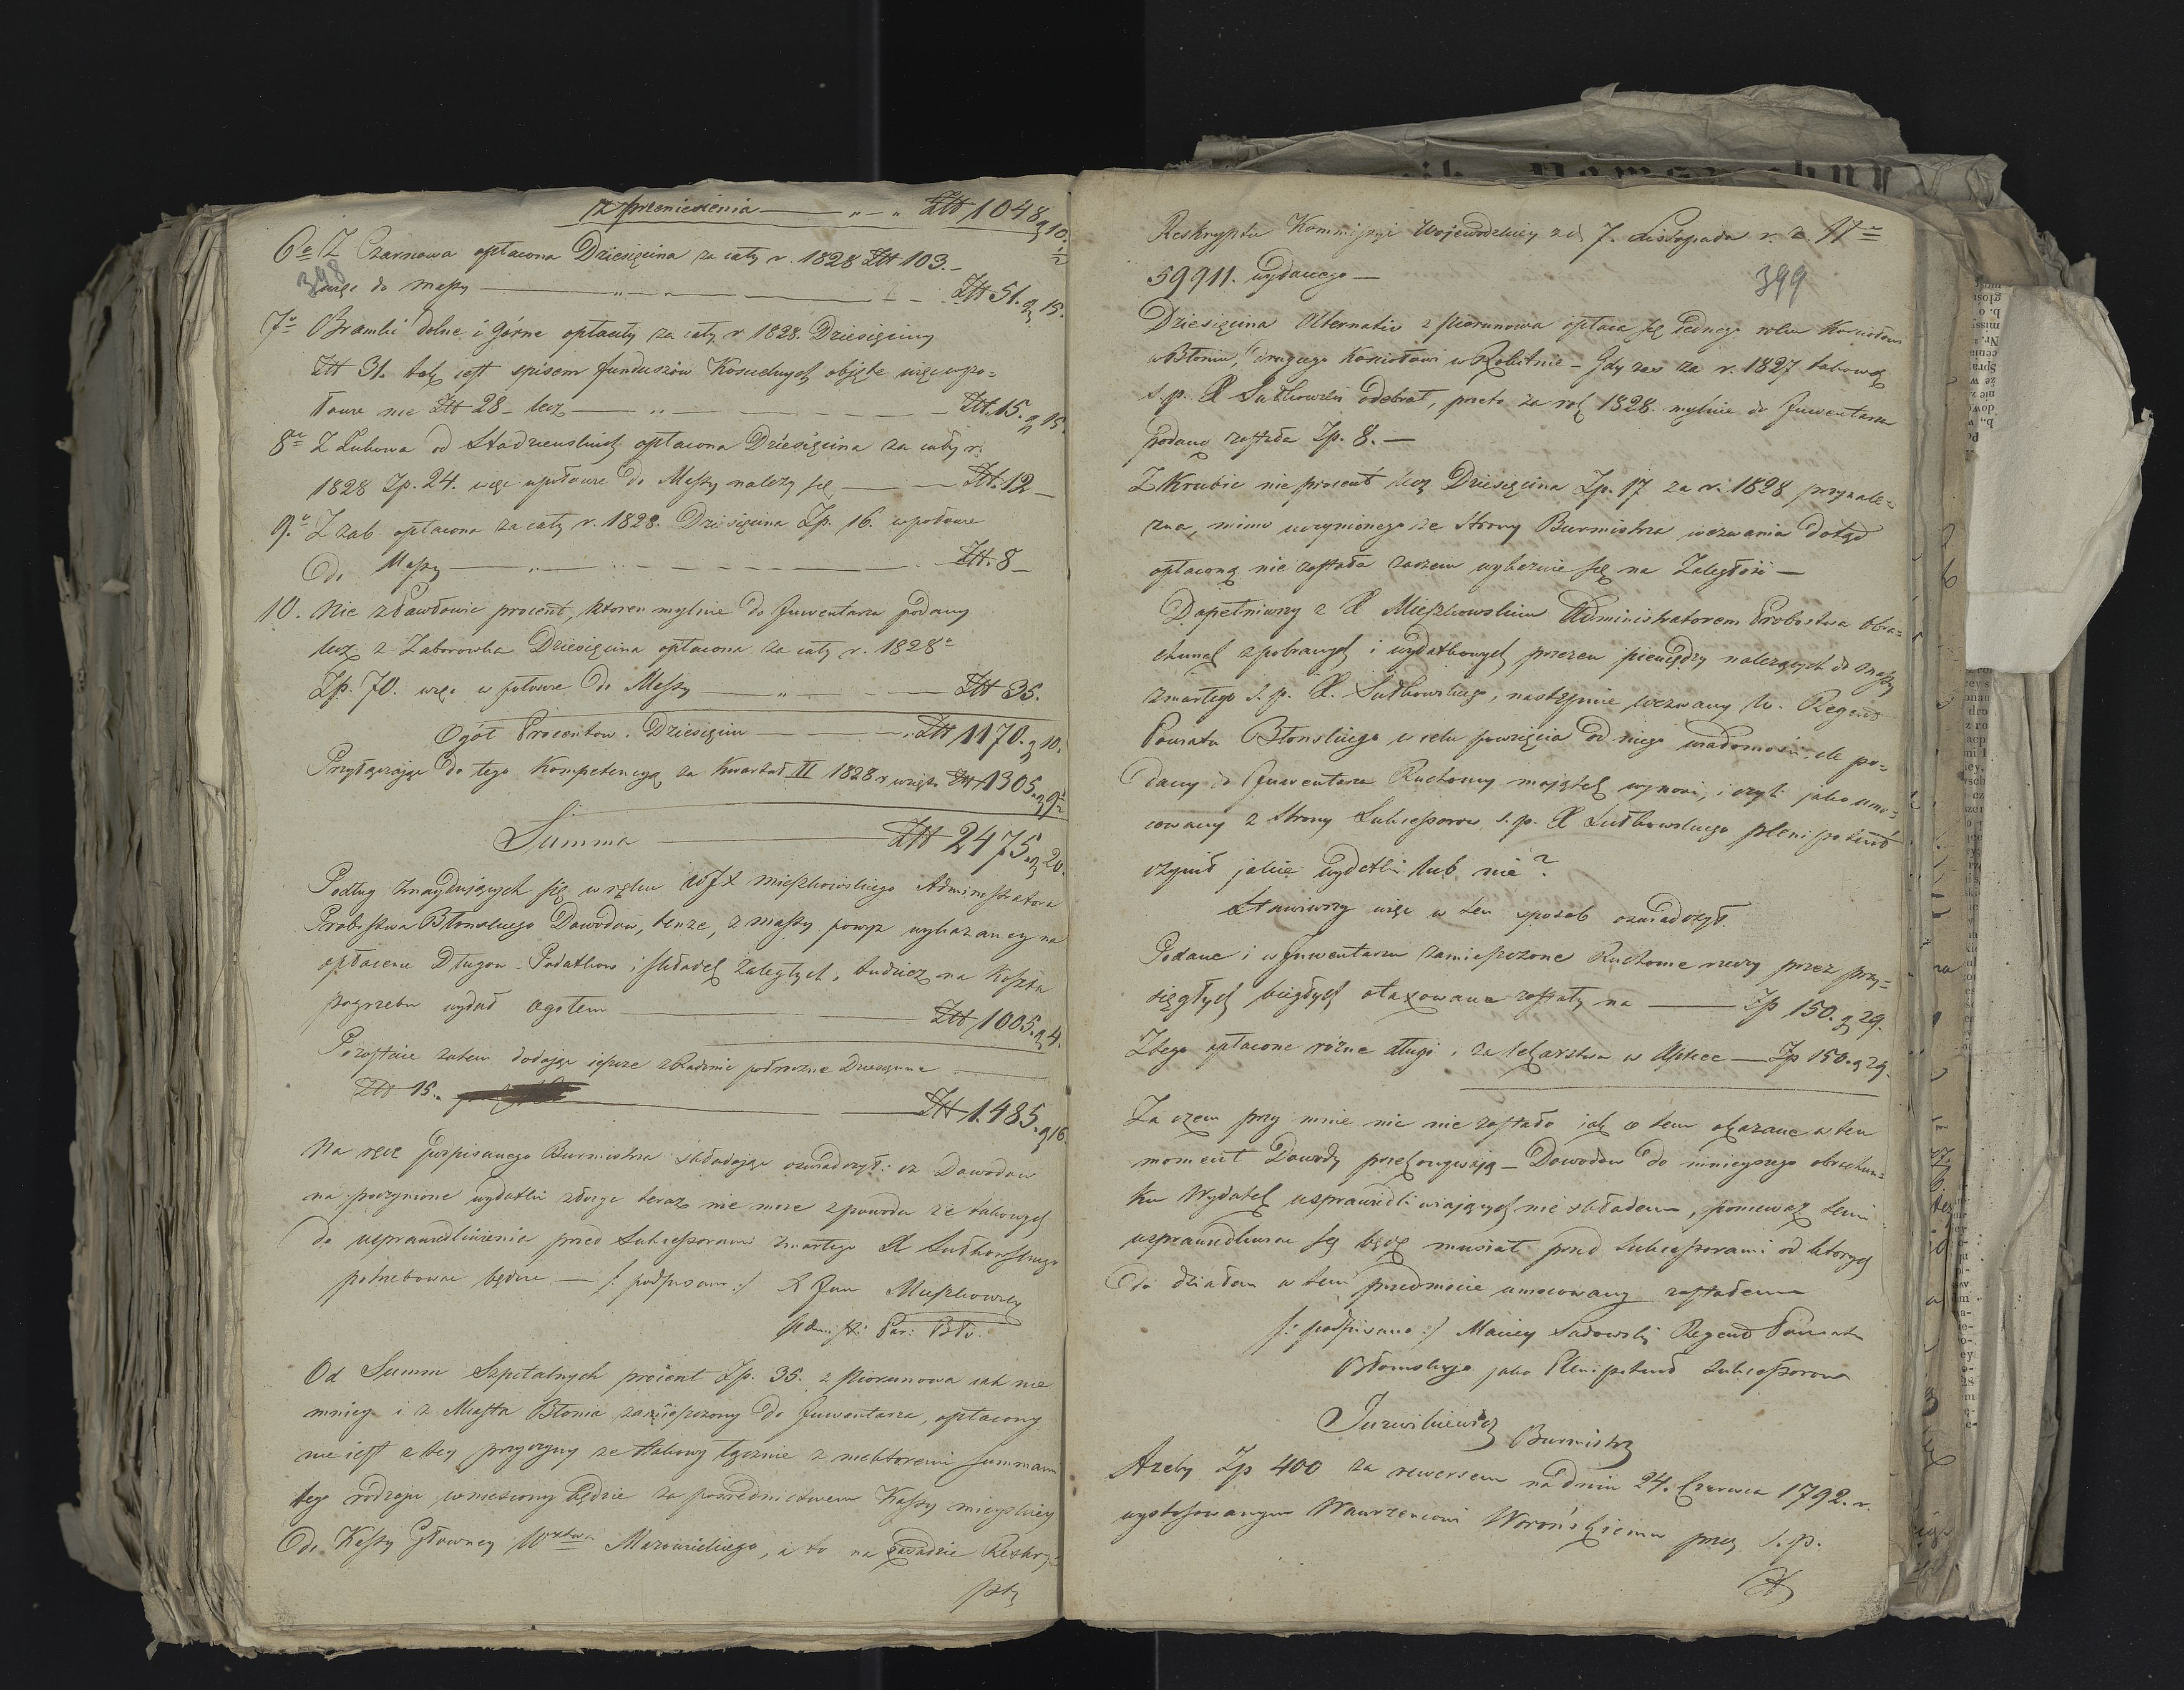 z przeniesienia — „ — „ Złł 1048 g 10.½
6e Z Czarnowa opłacona Dziesięcina za cały r. 1828 Złł 103.—
398
więc do massy — „ — Złł 51. g 15.
7e Bramki dolne i Górne opłaciły za cały r 1828. Dziesięciny
Złł 31. tak jest spisem funduszów Kościelnych objęte więc wpo=
łowie nie Złł 28 – lecz — „ — Złł. 15. g 15.
8e Z Łubowa od opłacona Dziesięcina za cały r.
1828 Zp. 24. więc wpołowie do Massy należy się — Złł. 12 —
9e Z zab opłacona za cały r. 1828. Dziesięcina Zp. 16. wpołowie
Do Massy — „ — Złł. 8 —
10. Nie procent, ktoren mylnie do Inwentarza podany
lecz z Zaborowka Dziesięcina opłacona za cały r. 1828e
Zp. 70. więc w połowie do Massy — „ — Złł 35.
Ogół Procentow i Dziesięcin — Złł 1170. g 10.
Przyłączając do tego Kompetencyą za Kwartał II 1828 r wziętą Złł 1305. g 9½
Summa — Złł 2475. g 20.
Podług znayduiących się w ręku WJX Mieszkowskiego Administratora
Probostwa Błonskiego Dowodow, tenże, z massy powyż wykazaney na
opłacenie Długow – Podatkow i składek zaległych, tudzież na Koszta
pogrzebu wydał ogołem — Złł 1005. g 4.
Pozostaie zatem dodając ieszcze półroczne Dziesięcinne
Złł 15. — Złł 1.485. g 16.
Na ręce podpisanego Burmistrza składając oświadczył: iż Dowodow
na poczynione wydatki złożyć teraz nie może zpowodu że takowych
do usprawiedliwienia przed Sukcessorami zmarłego X Sułkowskiego
potrzebować będzie. — /: podpisano :/ X Jan Mieszkowski
Adminstr: Par: Bło.
Od Summ Szpitalnych procent Zp. 35. z Piorunowa iak nie
mniey i z Miasta Błonia zamieszczony do Inwentarza, opłacony
nie iest z tey przyczyny że takowy łącznie z niektoremi Summami
tego rodzaju wniesiony będzie za posrednictwem Kassy mieyskiey
do Kassy Głowney Wwztwa Mazowieckiego, a to na zasadzie Reskry=
ptu
Reskryptu Kommissyi Wojewodzkiey z d. 7. Listopada r. z. Nro
59911. wydanego —
399
Dziesięcina Alternatiw z Piorunowa opłaca się iednego roku Kościołowi
w Błoniu, drugiego Kościołowi w Rokitnie – Gdy zas za r. 1827 takową
s. p. X Sułkowski odebrał, przeto za rok 1828. mylnie do Inwentarza
podaną została Zp. 8. —
Z Krubic nie procent lecz Dziesięcina Zp. 17 za r. 1828 przynale=
żna, mimo uczynionego ze Strony Burmistrza wezwania dotąd
opłaconą nie została zaczem wykazuie się na Zaległość —
Dopełniwszy z X Mieszkowskim Administratorem Probostwa Obra=
chunek z pobranych i wydatkowych przezen pieniędzy należących do Massy
zmarłego s. p. X. Sułkowskiego, następnie wezwany W. Regent
Powiatu Błonskiego w celu powzięcia od niego wiadomości, ile po=
dany do Inwentarza Ruchomy majątek wynosi, i czyli jako umo=
cowany z Strony Sukcessorow s. p. X Sułkowskiego plenipotent
czynił jakie wydatki lub nie?
Stawiwszy więc w ten sposob oswiadczył.
Podane i w Inwentarzu zamieszczone Ruchome rzeczy przez przy=
sięgłych biegłych otaxowane zostały na — Zp 150. g 29.
Z tego opłacone różne długi i za lekarstwa w Aptece — Zp 150. g 29.
Za czem przy mnie nic nie zostało iak o tem okazane w ten
moment Dowody przekonywają – Dowodow do ninieyszego obrachun=
ku Wydatek usprawiedliwiających nie składam, ponieważ temi
usprawiedliwiać się będę musiał przed Sukcessorami od ktorych
do działan w tem przedmiocie umocowany zostałem
/: podpisano :/ Maciey Sadowski Regent Powiatu
Błonskiego jako Plenipotent Sukcessorow
Burmistrz
Azeby Zp 400 za rewersem na dniu 24. Czerwca 1792. r.
wystosowanym Wawrzencowi Worońskiemu przez s. p.
X